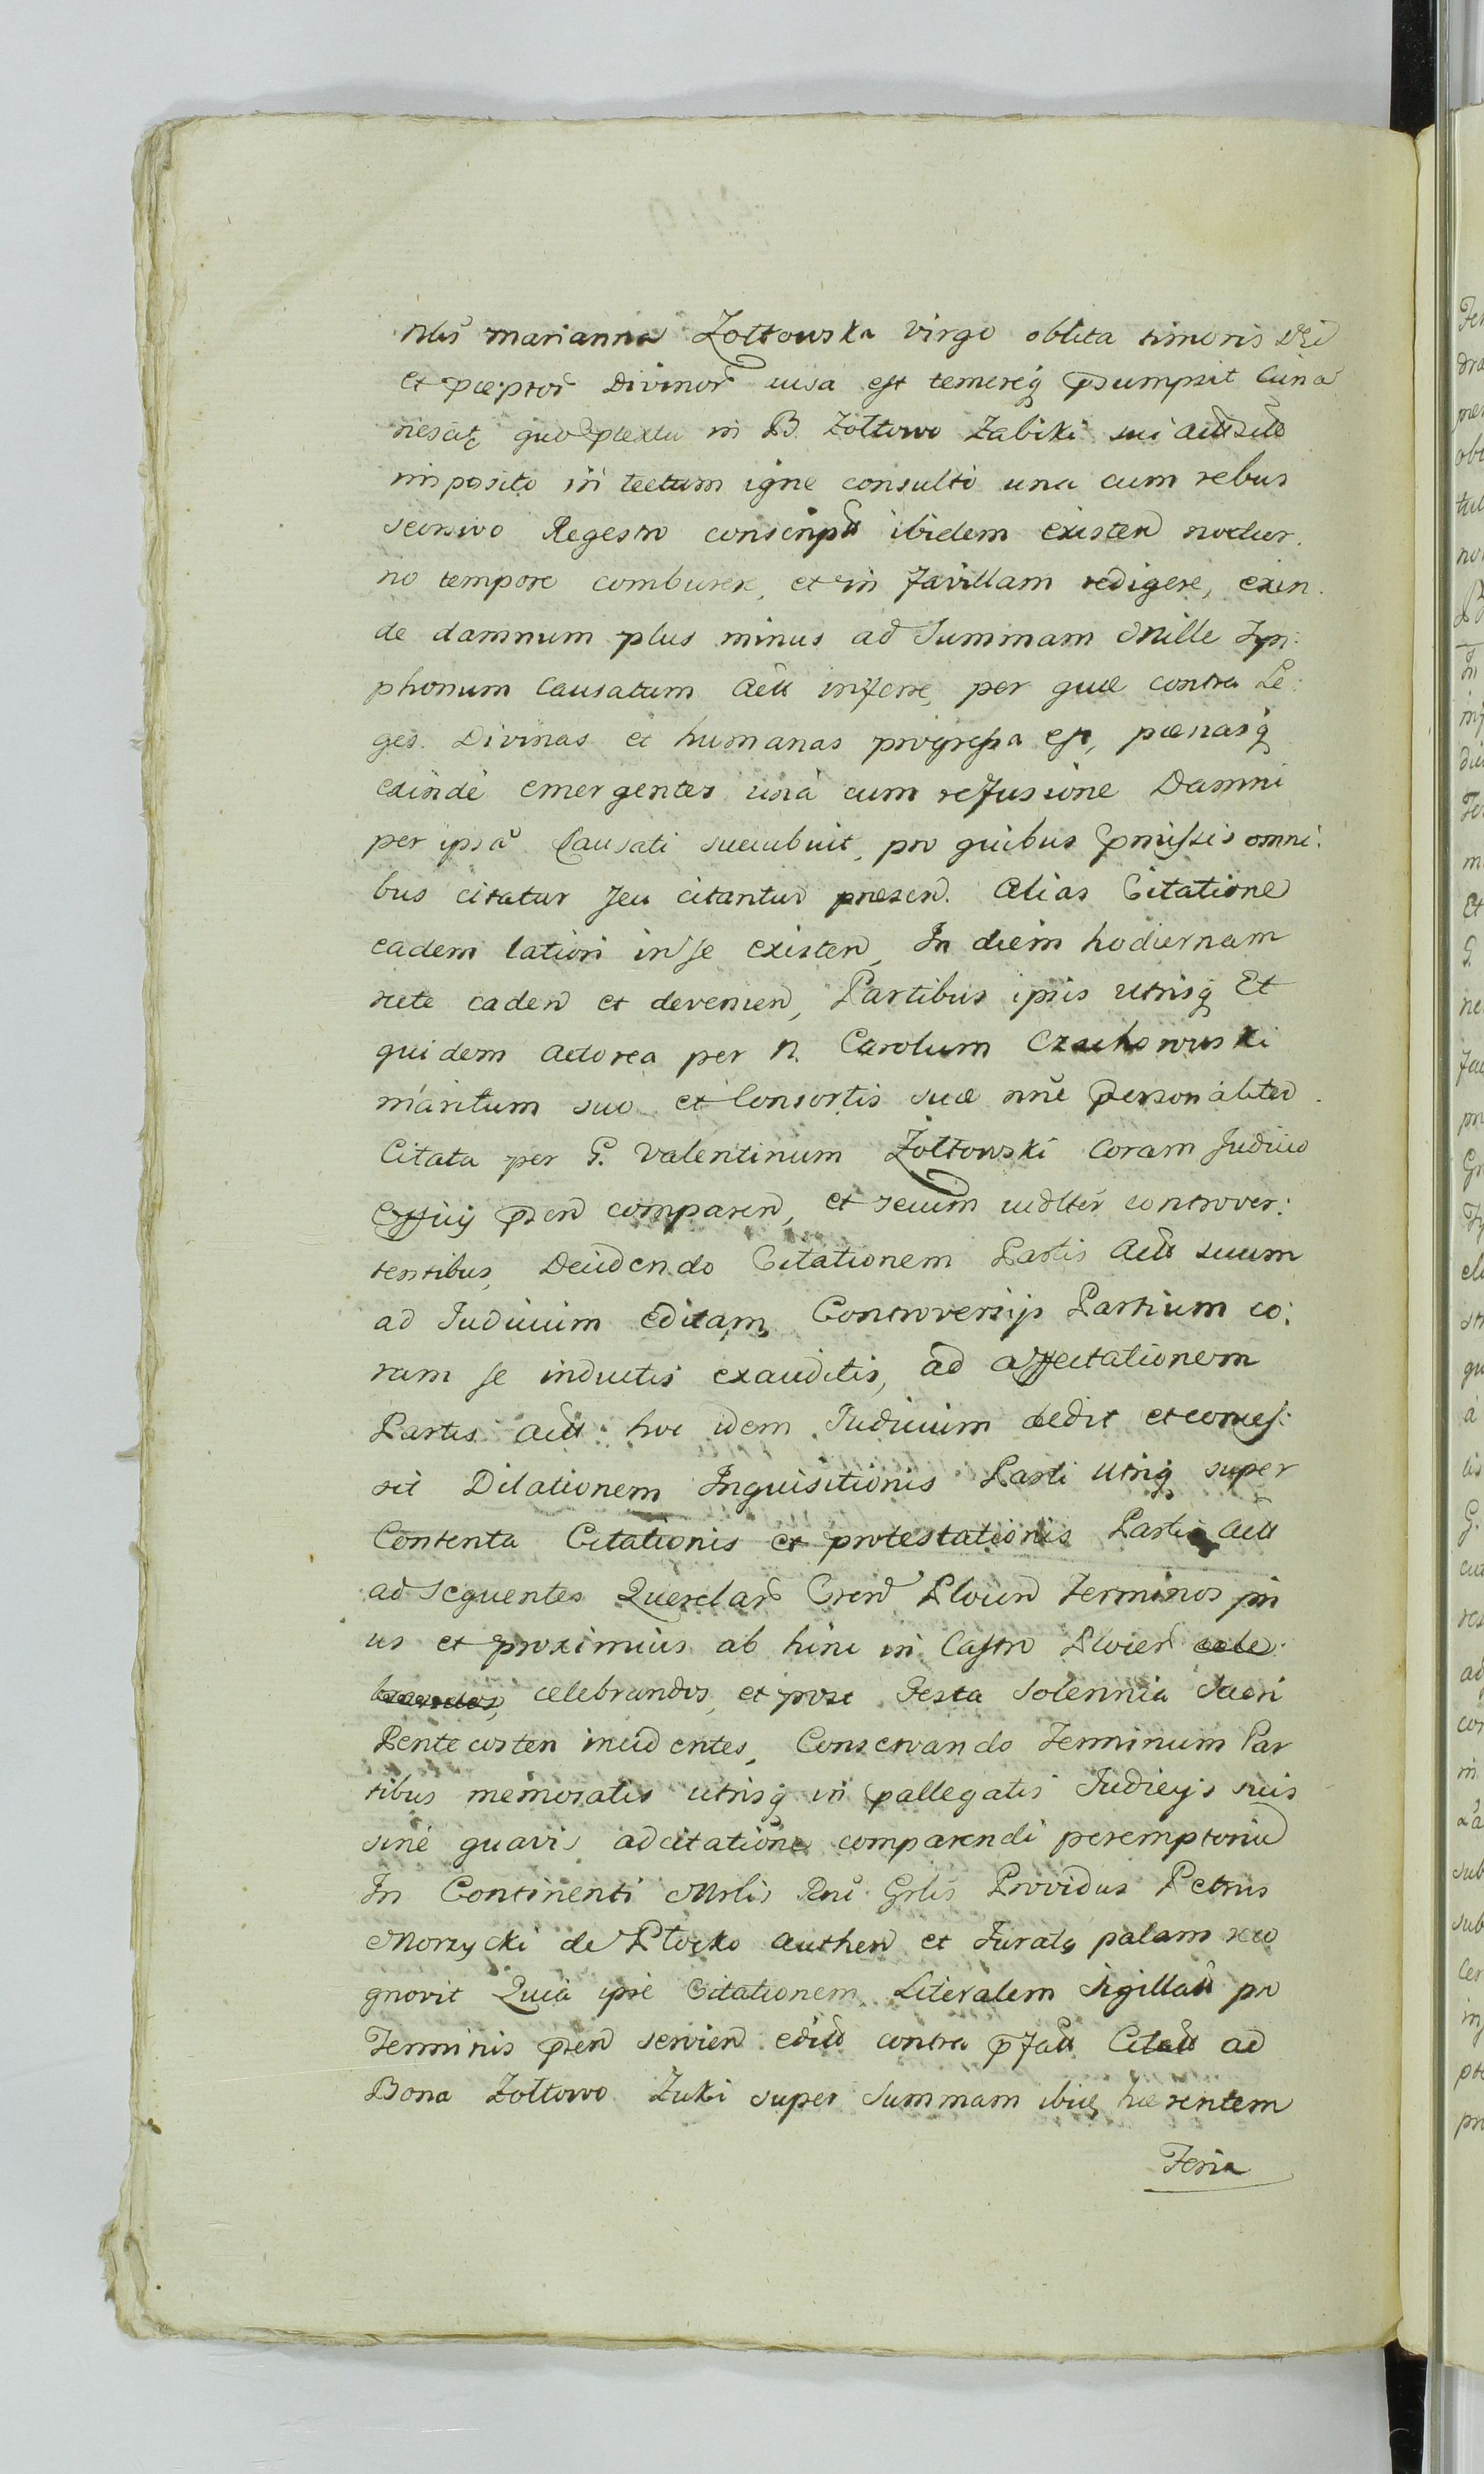 Nlis Marianna Zołtowska Virgo oblita timoris Dei
et pceptor Divinor visa est temereq psumpsit
nescitq quo ptextu in B. Zołtowo Żabiki sui
imposito in tectum igne consulto una cum rebus
seorsivo Regestro conscript ibidem existen noctur.
no tempore comburere, et in favillam redigere, exin.
de damnum plus minus ad Summam Mille Tym:
phonum Causatum Actt inferre, per quæ contra Le:
ges Divinas et humanas progressa est, pænasq
exinde emergentes una cum refusione Damni
per ipsa Causati succubuit, pro quibus pmissis omni:
bus citatur seu citantur presen. Alias Citatione
eadem latiori in se existen, In diem hodiernam
recte caden et devenien, Partibus ipsis utrisq Et
quidem Actorea per N. Carolum Czachorowski
maritum suo et Consortis suæ nne personaliter.
Citata per G. Valentinum Zołtowski Coram Judicio
Officij psen comparen, et secum controver:
tentibus, Decidendo Citationem Partis Actt suum
ad Judicium Editam, Controversijs Partium co:
ram se inductis exauditis, ad affectationem
Partis Actt hoc idem Judicium dedit et conces:
sit Dilationem Inquisitionis Parti utriq super
Contenta Citationis et protestationis Partis Actt
ad Sequentes Querelar Tren Plocen Terminos pri
us et proximius ab hinc in Castro Plocen cele:
brandos, celebrandos, et post Festa Solennia Sacri
Pentecosten incidentes, Conservando Terminum Par
tibus memoratis utrisq in pallegatis Judicijs suis
sine quavis adcitatione comparendi peremptorium
In Continenti Mrlis Rni Grlis Providus Petrus
Morzycki de Płocko authen et Juratq palam reco
gnovit Quia ipse Citationem Literalem Sigillatt pro
Terminis psen servien editt contra pfatt Citatt ad
Bona Zołtowo Zuki super Summam ibiq hærentem
Feria